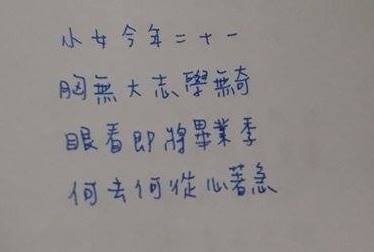 小女今年二十一
胸無大志學無奇
眼看即將畢業季
何去何從心著急